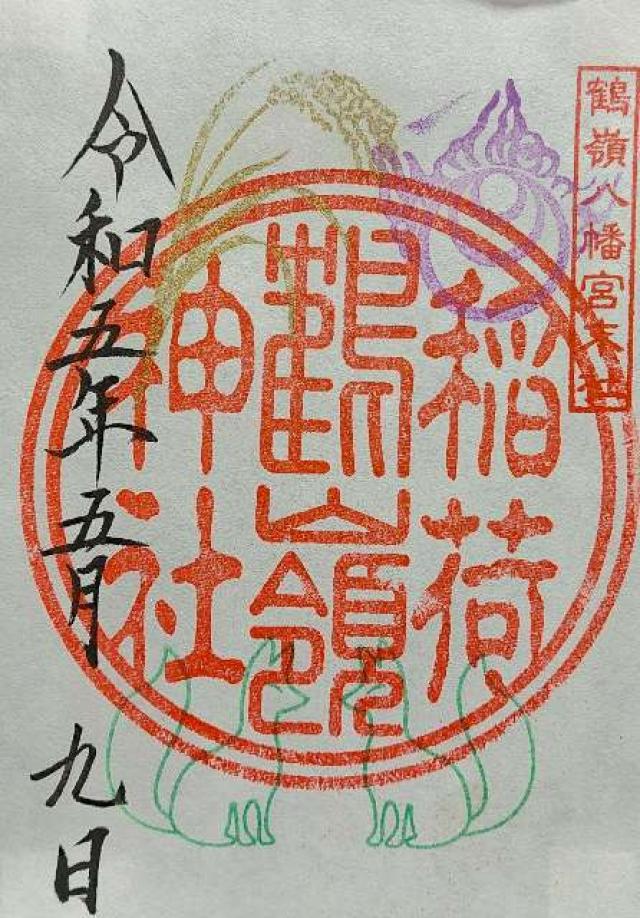 鶴嶺八幡宮末社
稲荷
鶴嶺
神社
令和五年五月九日